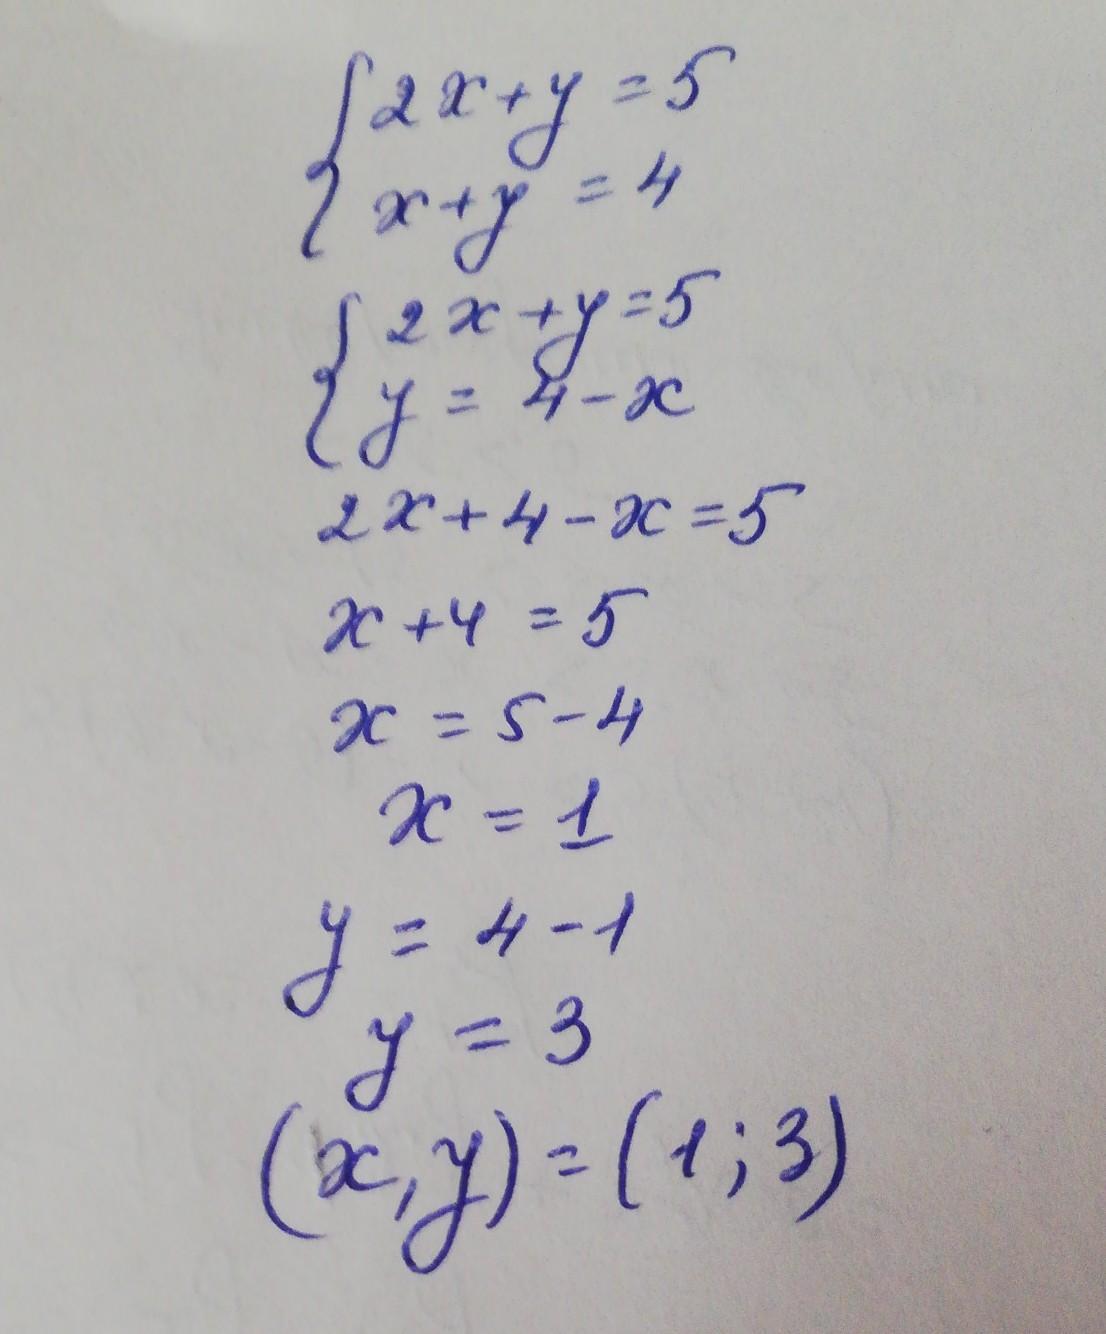 {2x+y=5
x+y=4
{2x+y=5
y=4-x
2x+4-x=5
x+4=5
x=5-4
x=1
y=4-1
y=3
(x,y)=(1;3)